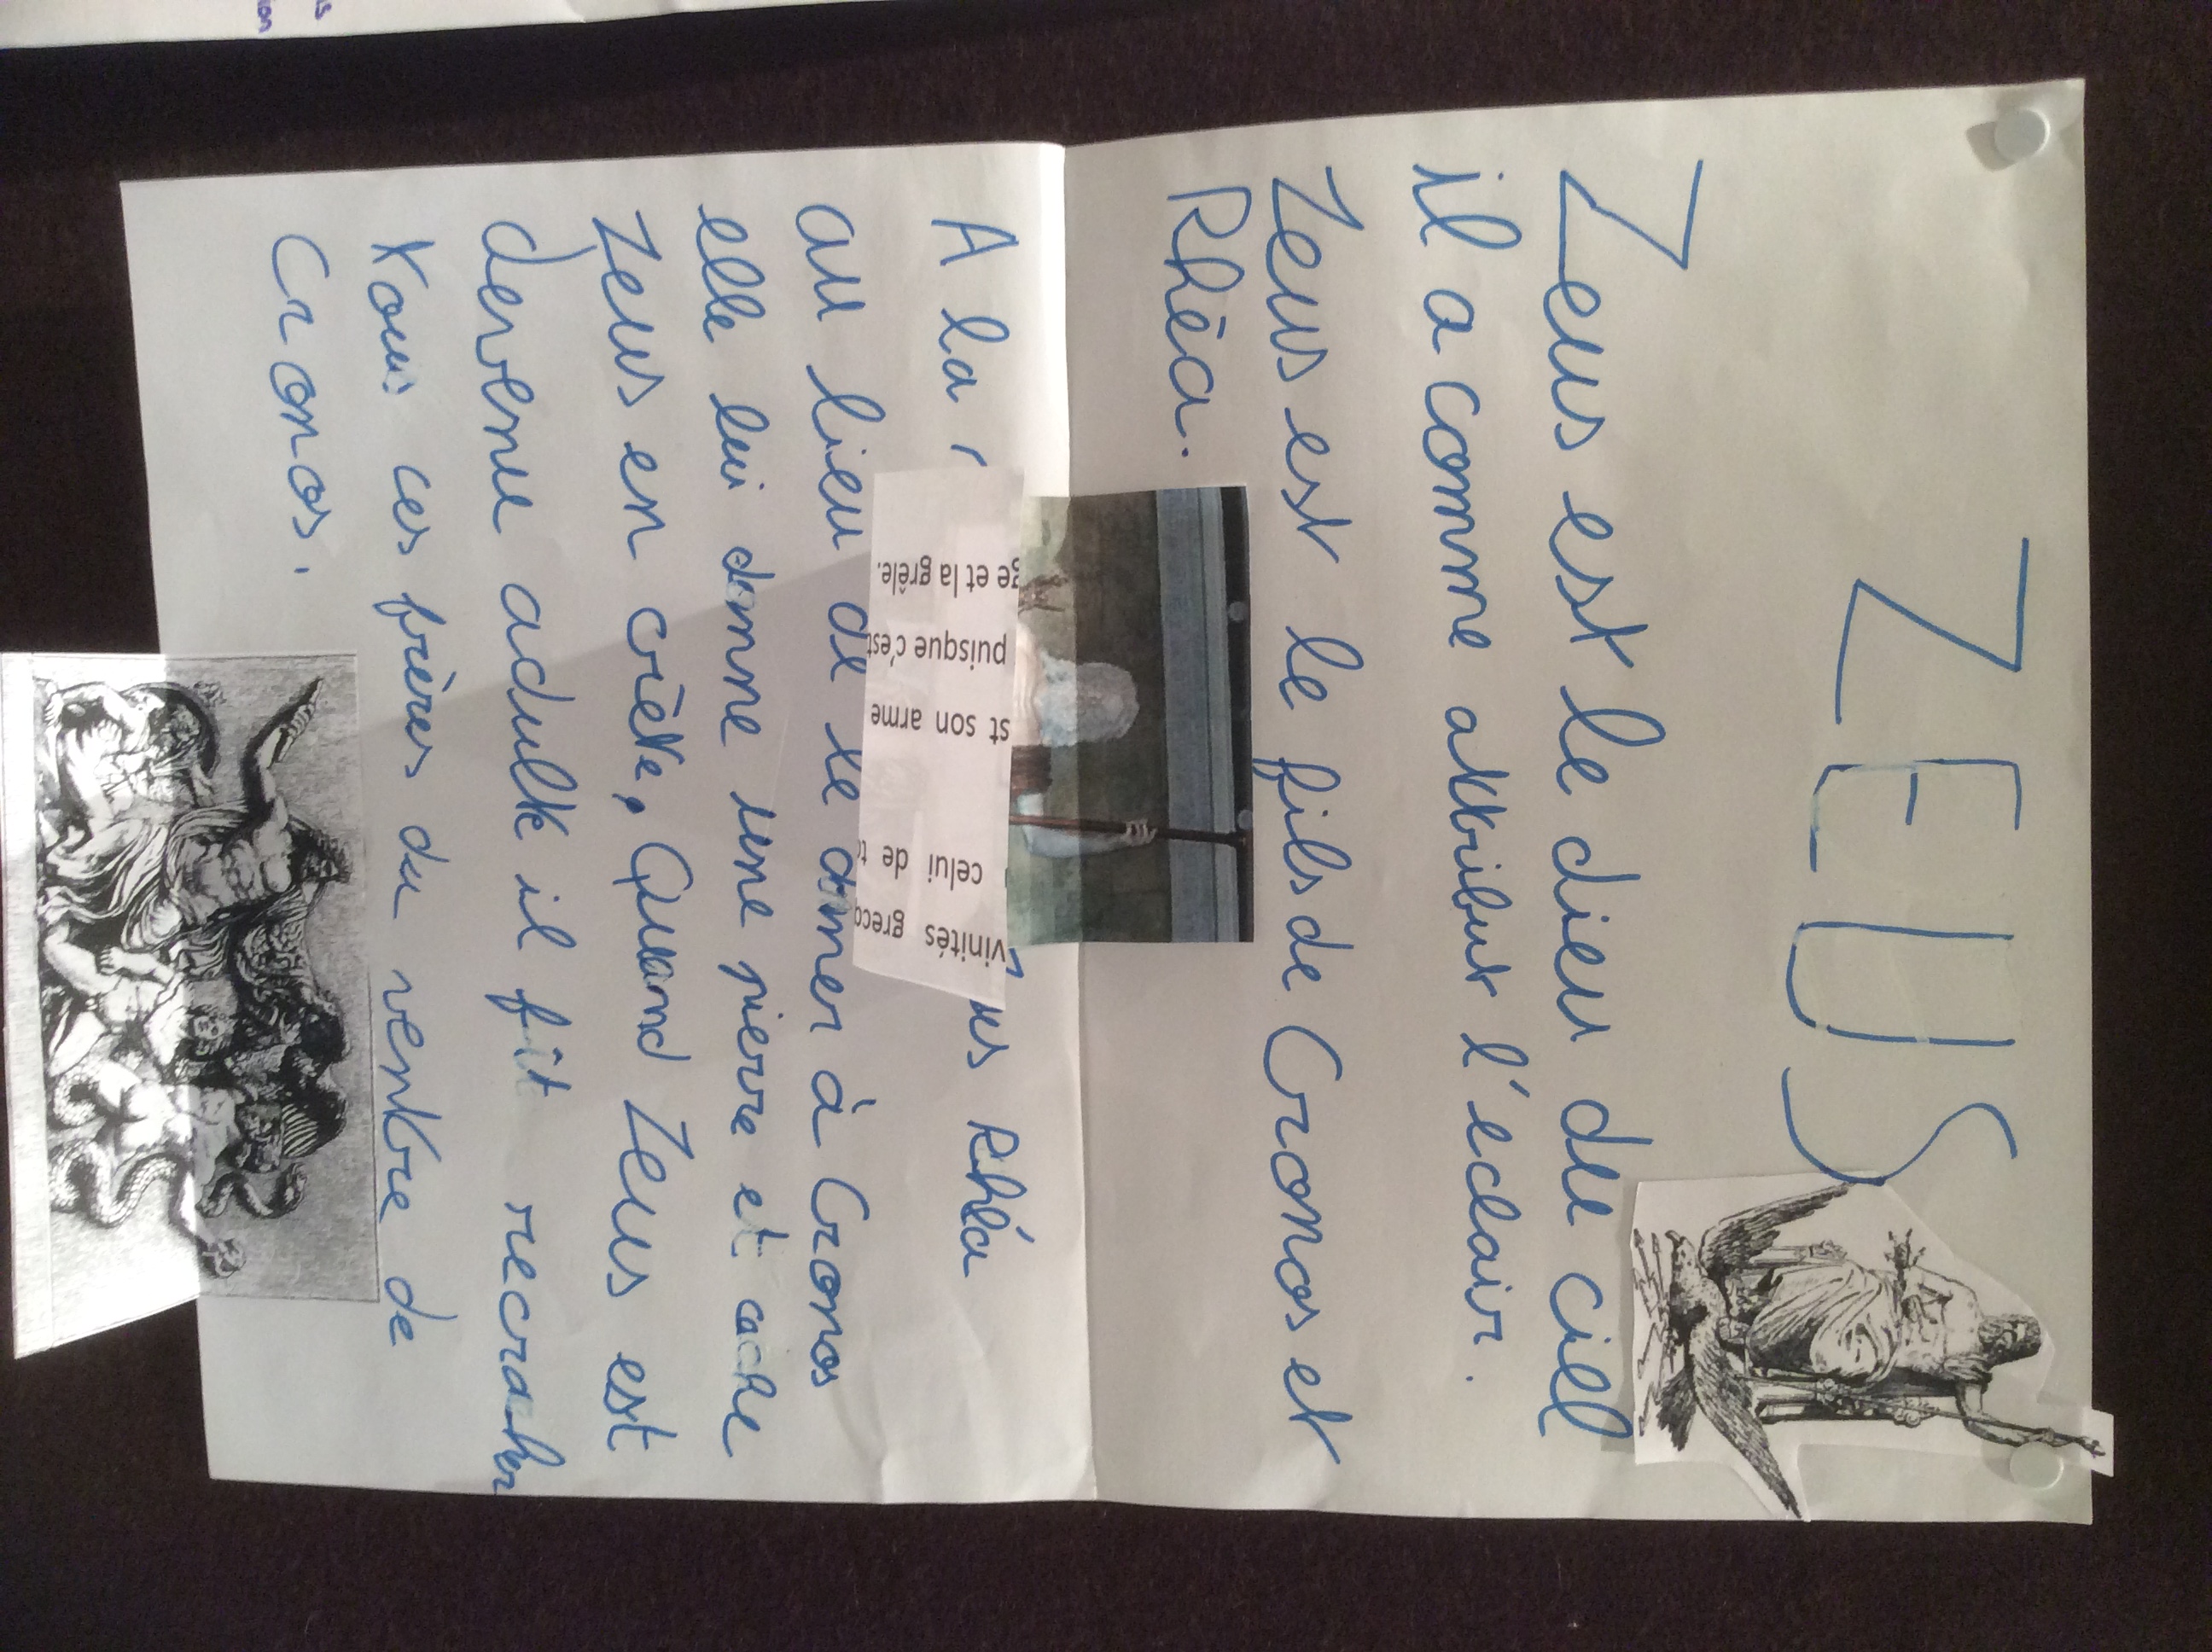 ZEUS
Zeus est le dieu du ciel
il a comme attribut l'eclair.
Zeus est le fils de Cronos et
Rhéa.
A la
Rhéa
au lieu de le donner à Cronos
elle lui donne une pierre et cache
Zeus en crète, Quand Zeus est
devenu adulte il fit recracher
tous ces frères du ventre de
Cronos.
vinités grecq
celui de to
st son arme
puisque c'est
ge et la grêle.